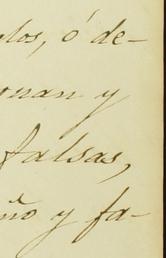 los, ó de-
onan y
falsas,
ño y fa-